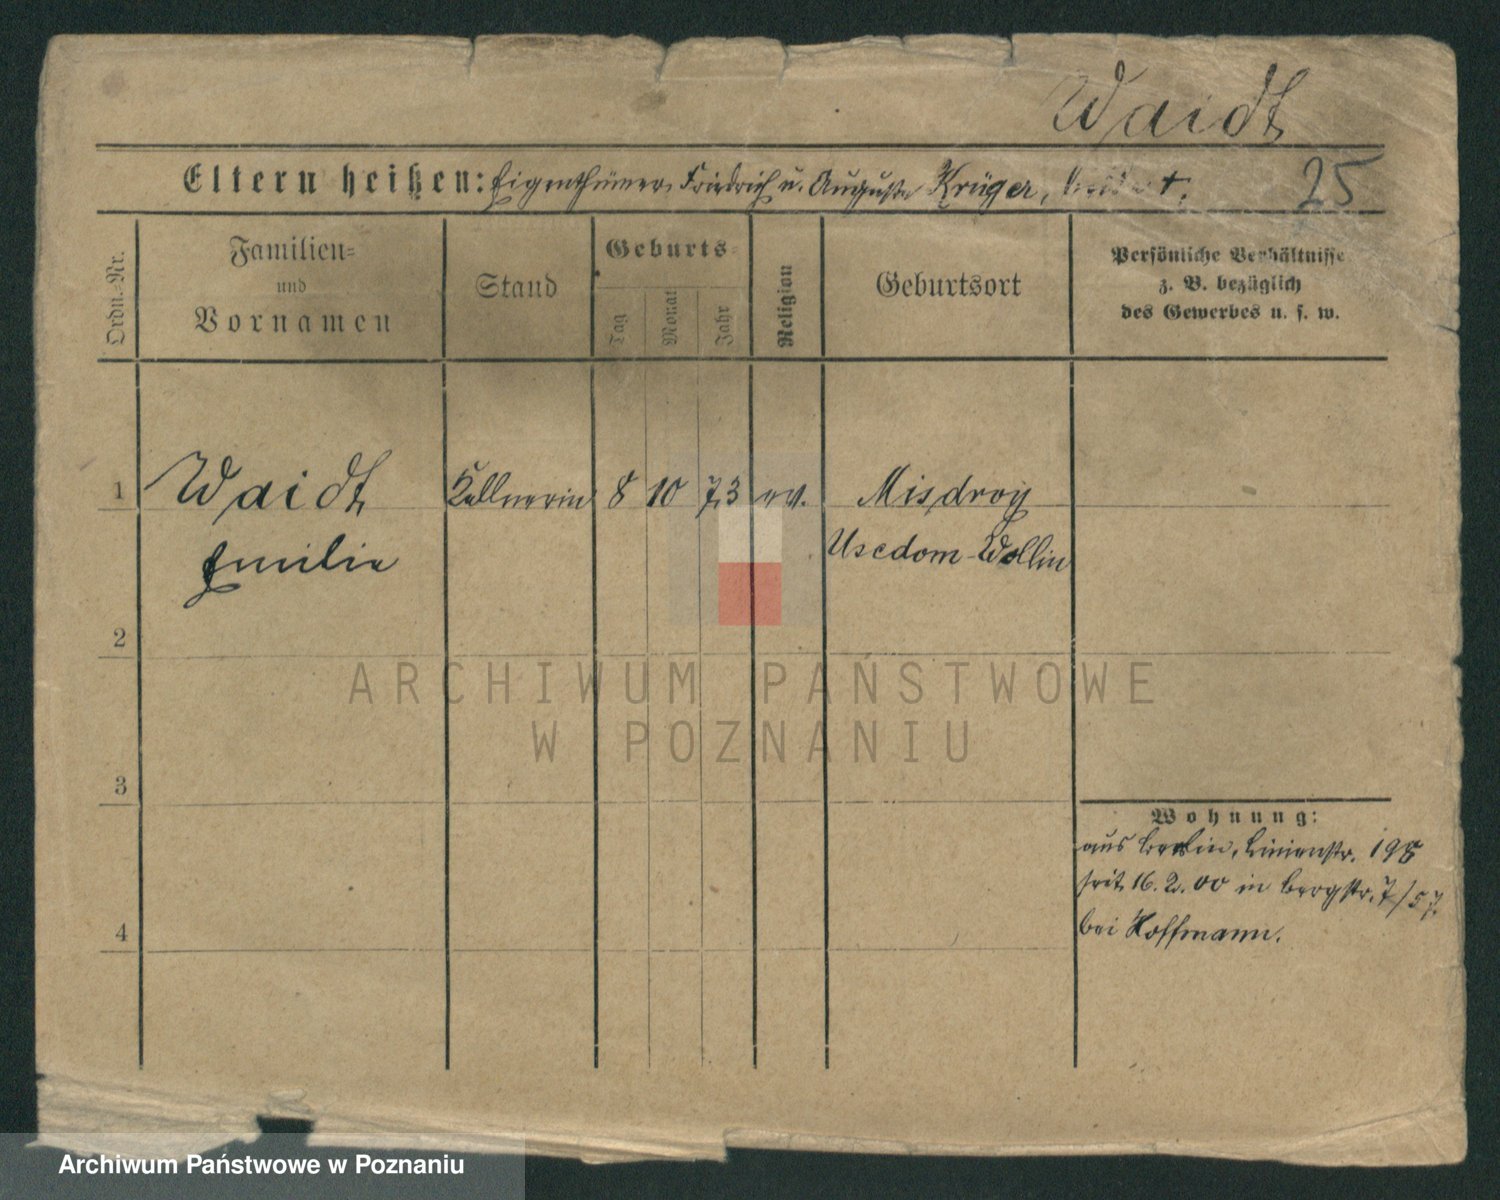 Waidt
Eltern heißen: Eigenthümer Friedrich u. Auguste Krüger, beide †.
25
Ordn.-Nr.
Familien-
und
Vornamen
Stand
Geburts-
Tag
Monat
Jahr
Religion
Geburtsort
Persönliche Verhältnisse
z. B. bezüglich
des Gewerbes u. s. w.
1 Waidt Kellnerin 8 10 73 ev. Misdroy
Emilie Usedom-Wollin
2
3
Wohnung:
aus Berlin, Linienstr. 198
seit 16.2.00 in Bergstr. 7/57.
bei Hoffmann.
4
ARCHIWUM PAŃSTWOWE
W POZNANIU
Archiwum Państwowe w Poznaniu